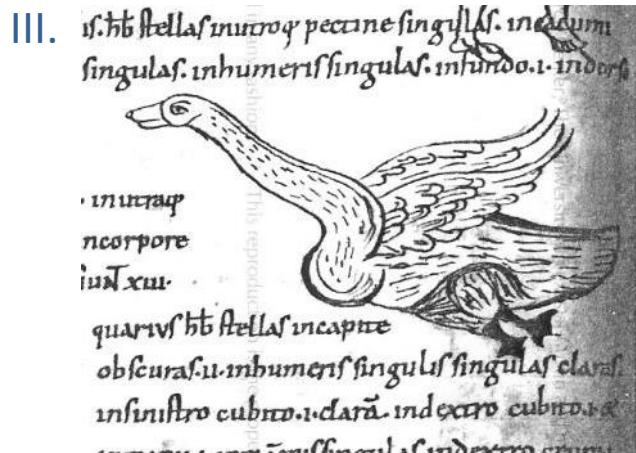 III.
is. hb̄ stellas inutroq; pectine singulas. incadum
singulas. inhumeris singulas. infundo .i. indorso
. inutraq;
ncorpore
sunt̄ xiii.
quarius hb̄ stellas incapite
obscuras .ii. inhumeris singulis singulas claras.
insinistro cubito .i. clarā. indextro cubito .i.
singulas indextro